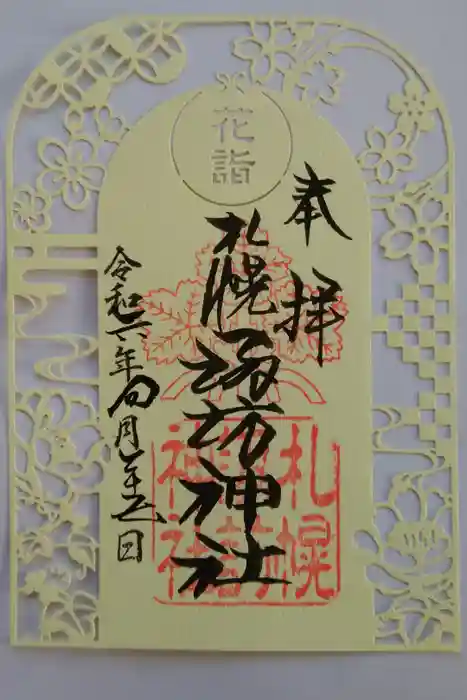 花詣
奉拝
札幌諏訪神社
令和二年四月二十五日
札幌
諏訪
神社